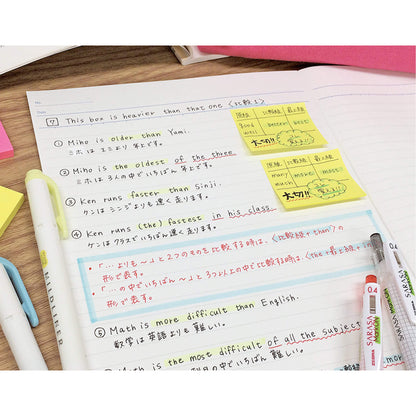 No.
Date
7 This box is heavier than that one 〈比較 1〉
① Miho is older than Yumi.
ミホはユミより年上です。
② Miho is the oldest of the three
ミホは3人の中でいちばん年上です。
③ Ken runs faster than Sinji.
ケンはシンジよりも速く走ります。
④ Ken runs (the) fastest in his class
ケンはクラスでいちばん速く走ります。
原級 比較級 最上級
good
well better best
大切!!
覚えよう
原級 比較級 最上級
many
much more most
大切!!
覚えよう
・「…よりも～」と2つのものを比較する時は、〈比較級 + than〉の
形で表す。
・「…の中でいちばん～」と3つ以上の中で比較する時は、〈the + 最上級 +
形で表す。
⑤ Math is more difficult than English.
数学は英語よりも難しい。
Math is the most difficult of all the subject
の中でいちばん難しい。
MILDLINER
0.4
SARASA
0.4
SARASA